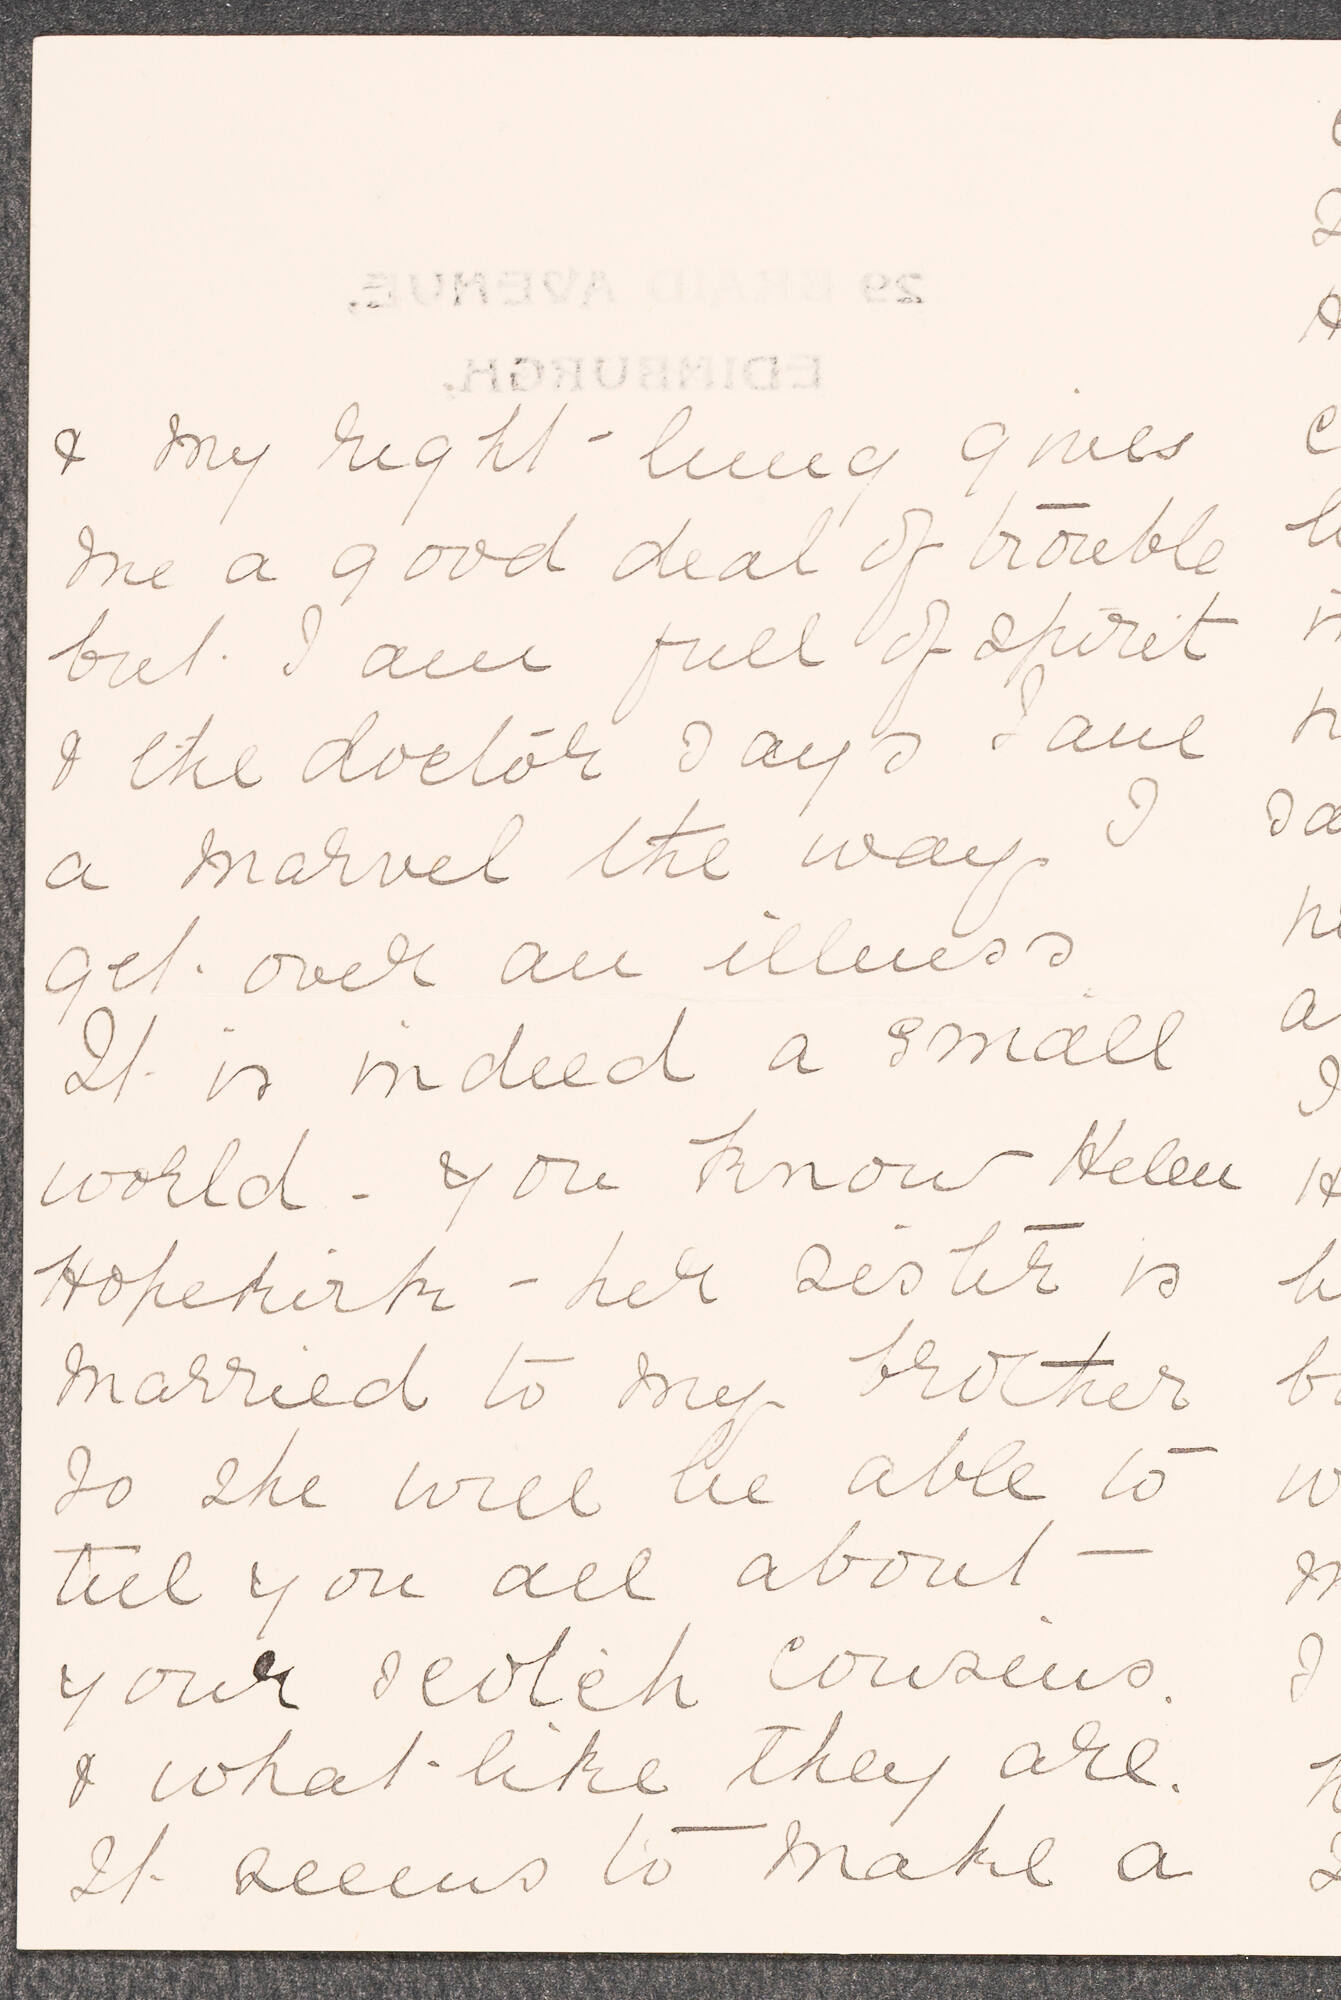 29 BRAID AVENUE,
EDINBURGH.
& my right lung gives
me a good deal of trouble
but I am full of spirit
& the doctor says I am
a marvel the way I
get over an illness
It is indeed a small
world - you know Helen
Hopekirk - her sister is
married to my brother
so she will be able to
tell you all about
your Scotch cousins.
& what like they are.
It seems to make a